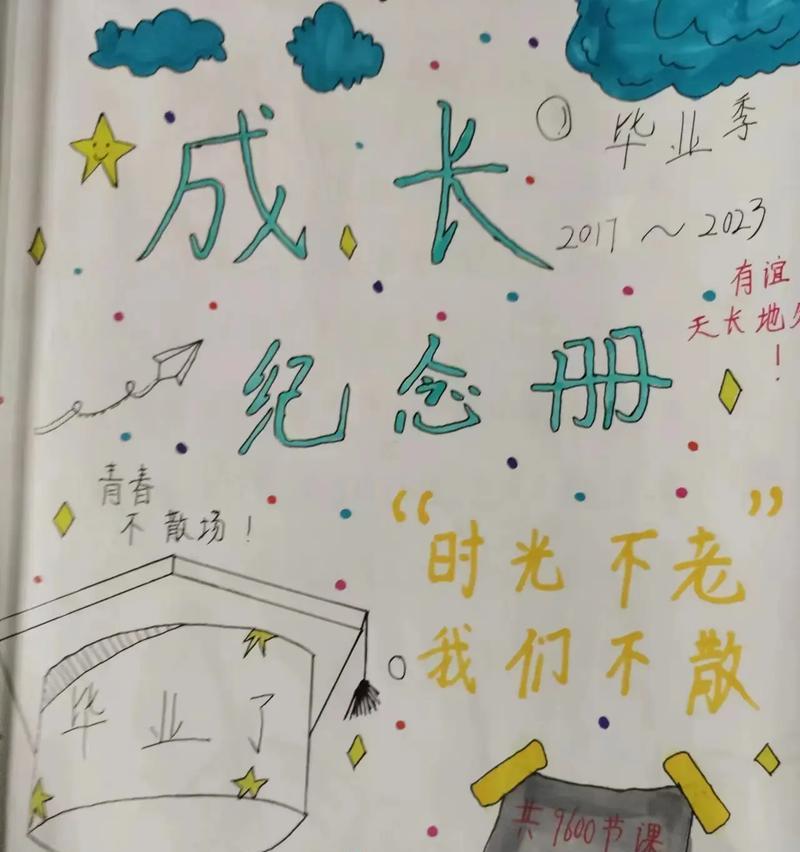 成长
毕业季
2017～2023
有谊
天长地久
！
纪念册
青春
不散场！
“时光不老”
我们不散
毕业了
共9600节课